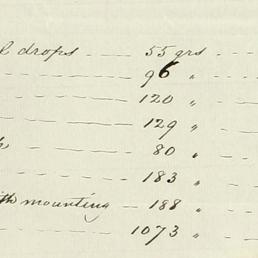 drops 55 grs
96 "
120 "
129 "
80 "
183 "
with mounting 188 "
1073 "